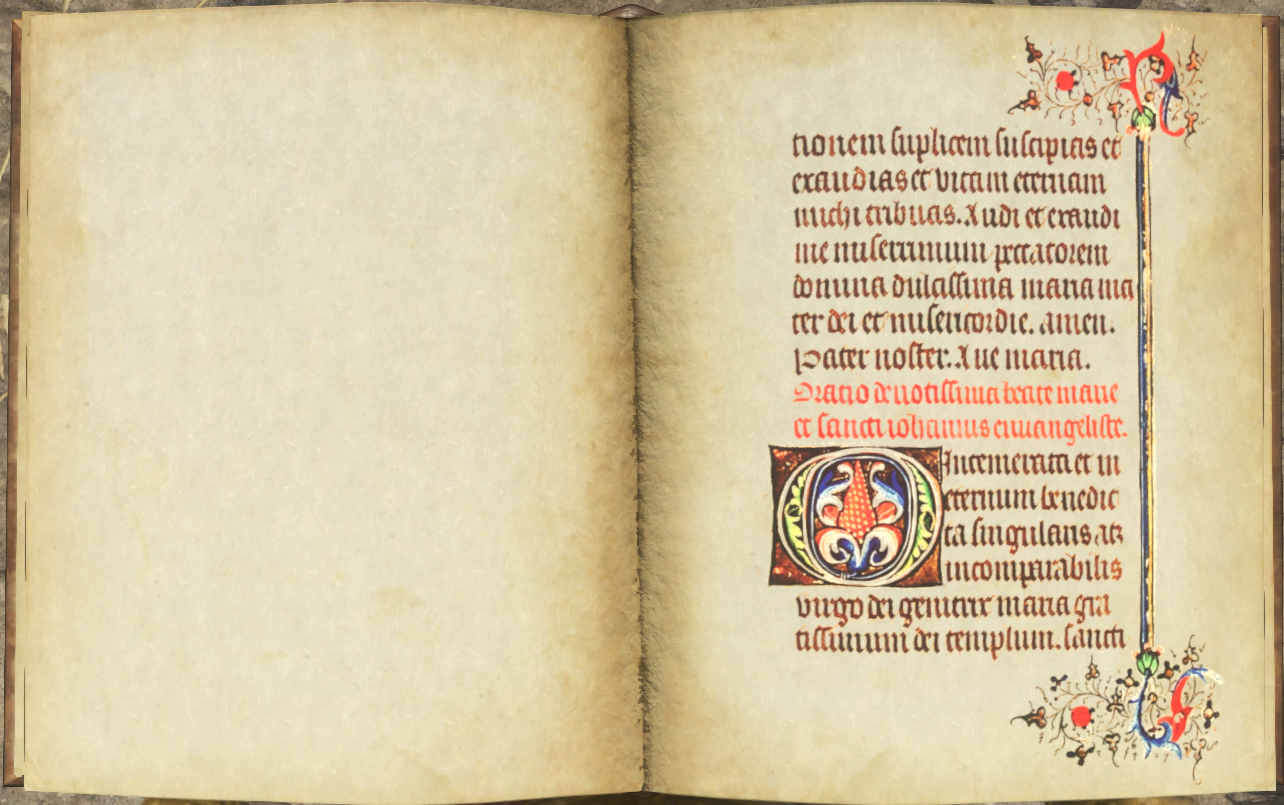 tionem suplicem suscipias et
exaudias et vitam eternam
michi tribuas. Audi et exaudi
me miserrimum peccatorem
domina dulcissima maria ma
ter dei et misericordie. amen.
Pater noster. Aue maria.
Oratio deuotissima beate marie
et sancti iohannis euuangeliste.
O Intemerata et in
eternum benedic
ta singularis atq
incomparabilis
virgo dei genitrix maria gra
tissimum dei templum. sancti